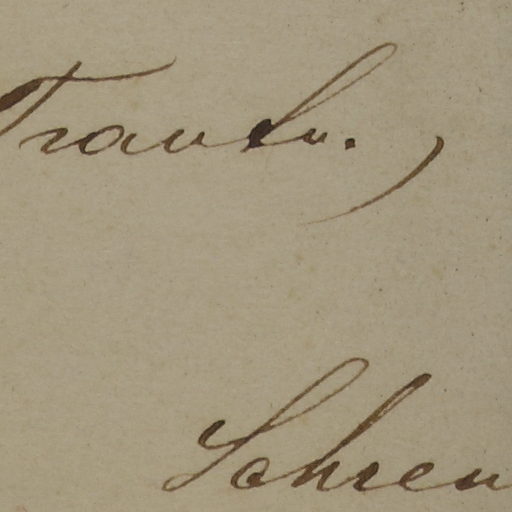 Trautv.)
Schren